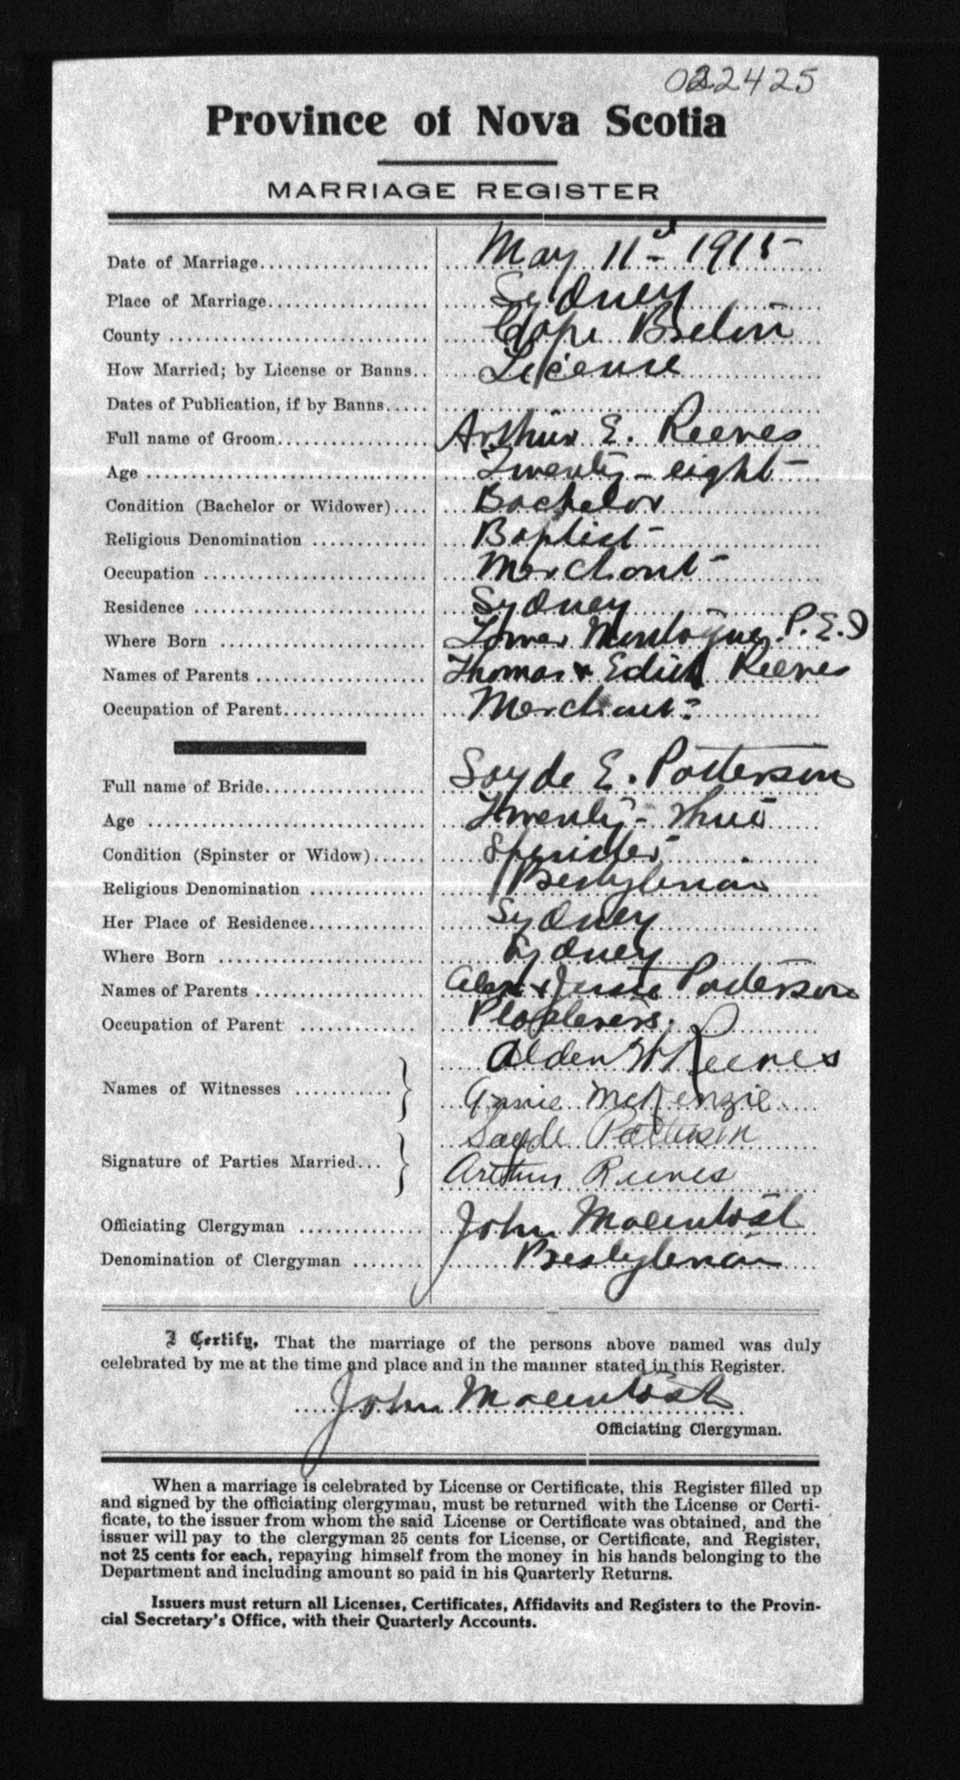 022425
Province of Nova Scotia
MARRIAGE REGISTER
Date of Marriage May 11th 1915
Place of Marriage Sydney
County Cape Breton
How Married; by License or Banns License
Dates of Publication, if by Banns
Full name of Groom Arthur E. Reeves
Age Twenty-eight
Condition (Bachelor or Widower) Bachelor
Religious Denomination Baptist
Occupation Merchant
Residence Sydney
Where Born Lower Montague, P.E.I
Names of Parents Thomas & Edith Reeves
Occupation of Parent Merchant
Full name of Bride Sayde E. Patterson
Age Twenty-three
Condition (Spinster or Widow) Spinster
Religious Denomination Presbyterian
Her Place of Residence Sydney
Where Born Sydney
Names of Parents Alex & Patterson
Occupation of Parent
Names of Witnesses Alden W Reeves
Annie McKenzie
Signature of Parties Married Sayde Patterson
Arthur Reeves
Officiating Clergyman John Macintosh
Denomination of Clergyman Presbyterian
I Certify, That the marriage of the persons above named was duly
celebrated by me at the time and place and in the manner stated in this Register.
John Macintosh
Officiating Clergyman.
When a marriage is celebrated by License or Certificate, this Register filled up
and signed by the officiating clergyman, must be returned with the License or Certi-
ficate, to the issuer from whom the said License or Certificate was obtained, and the
issuer will pay to the clergyman 25 cents for License, or Certificate, and Register,
not 25 cents for each, repaying himself from the money in his hands belonging to the
Department and including amount so paid in his Quarterly Returns.
Issuers must return all Licenses, Certificates, Affidavits and Registers to the Provin-
cial Secretary's Office, with their Quarterly Accounts.